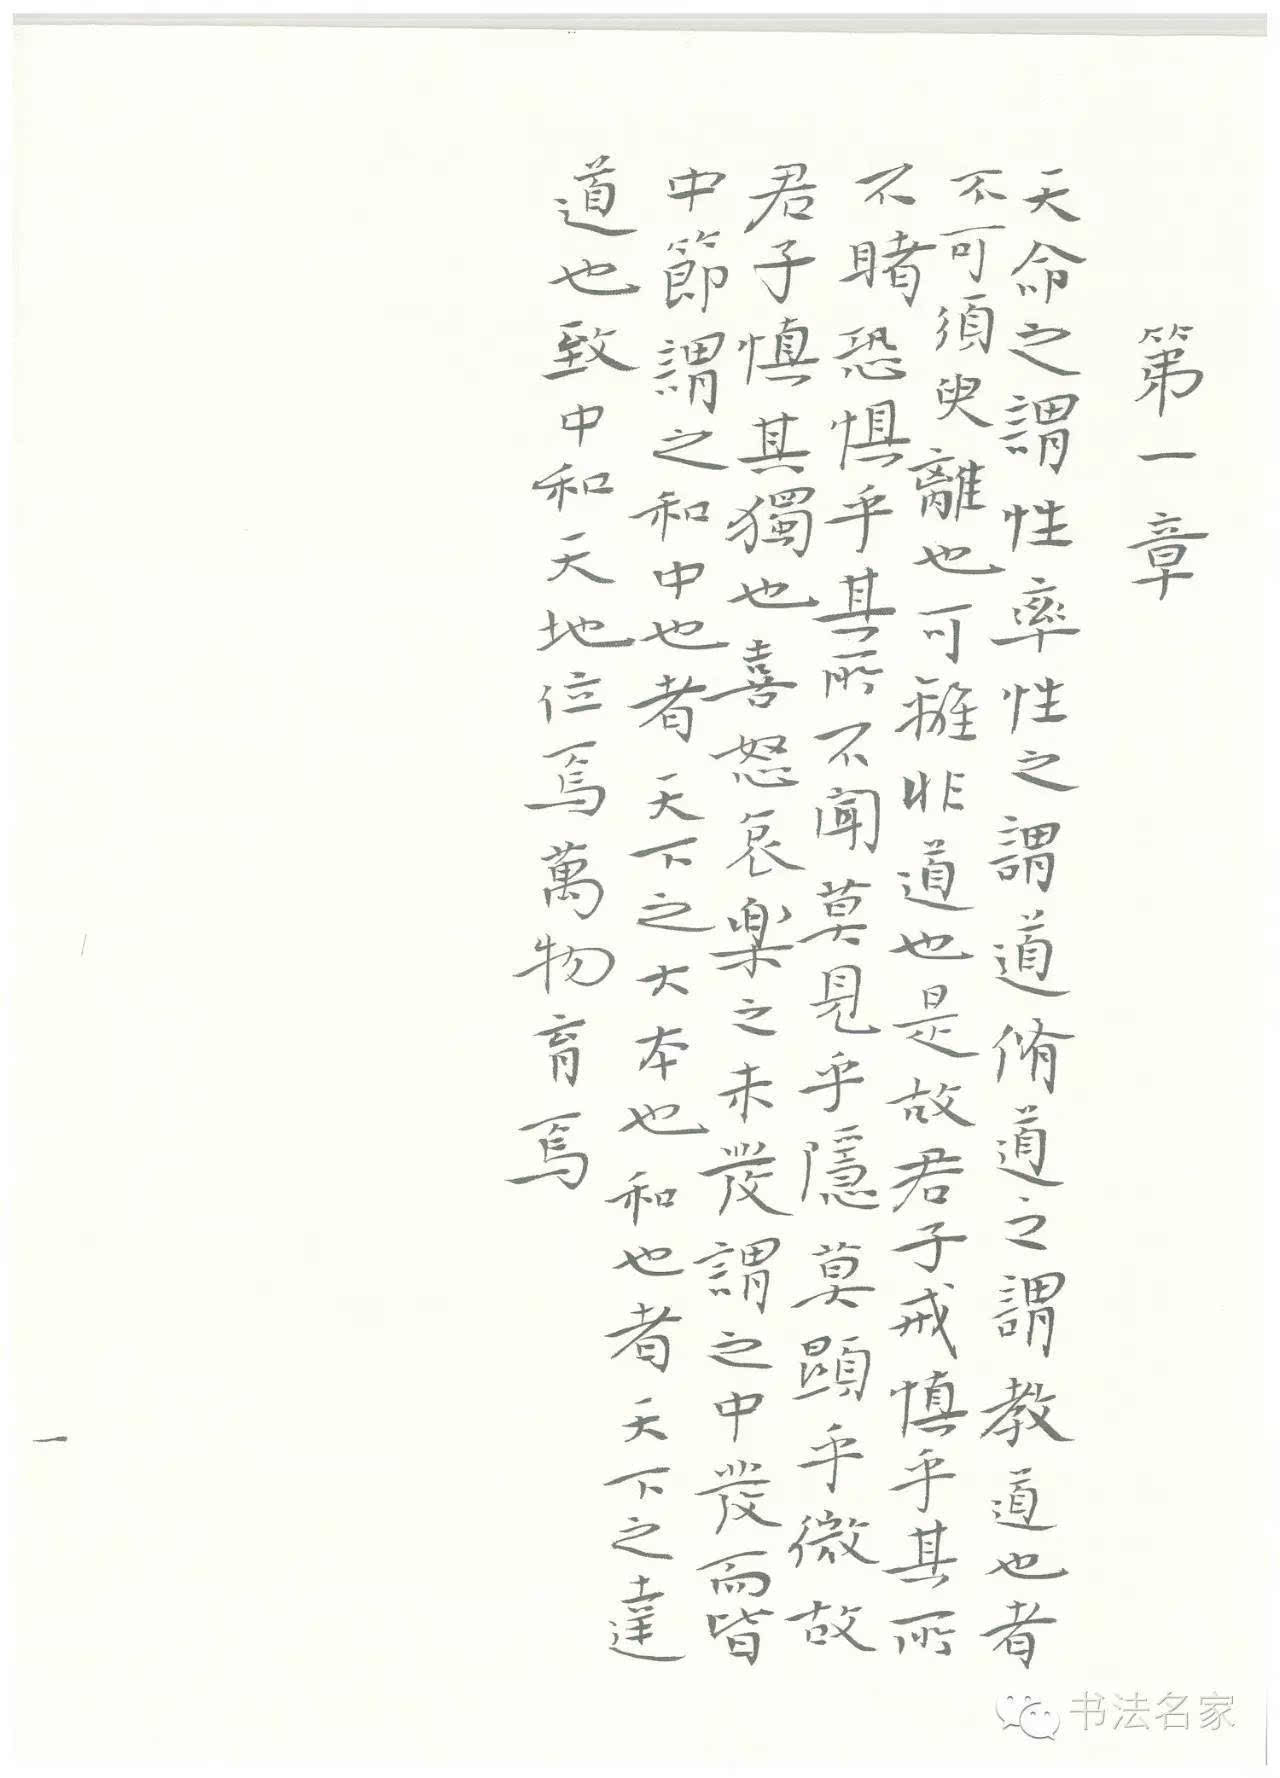 第一章
天命之謂性率性之謂道脩道之謂教道也者
不可須臾離也可離非道也是故君子戒慎乎其所
不睹恐惧乎其所不闻莫見乎隱莫顕乎微故
君子慎其獨也喜怒哀楽之未发謂之中发而皆
中節謂之和中也者天下之大本也和也者天下之達
道也致中和天地位焉萬物育焉
一
书法名家